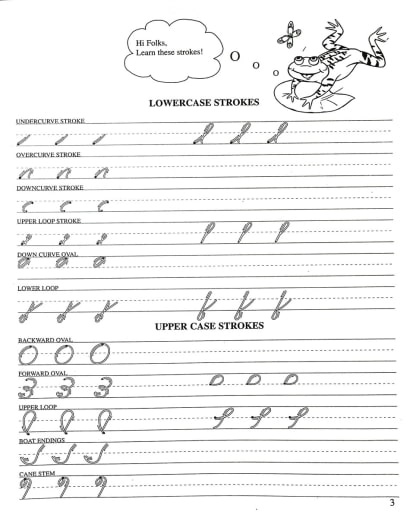 Hi Folks,
Learn these strokes!
LOWERCASE STROKES
UNDERCURVE STROKE
OVERCURVE STROKE
DOWNCURVE STROKE
UPPER LOOP STROKE
DOWN CURVE OVAL
LOWER LOOP
UPPER CASE STROKES
BACKWARD OVAL
FORWARD OVAL
UPPER LOOP
BOAT ENDINGS
CANE STEM
3